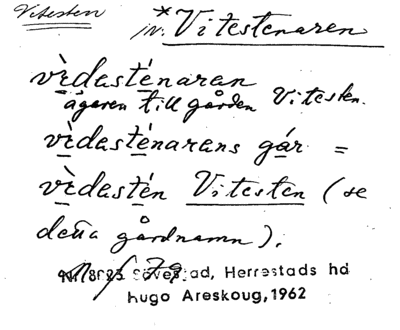 Vitesten
*Vitestenaren
vìdasténaran
ägaren till gården Vitesten.
vìdasténarans gár =
vìdastén Vitesten (se
denna gårdnamn).
Sövestad, Herrestads hd
Hugo Areskoug, 1962